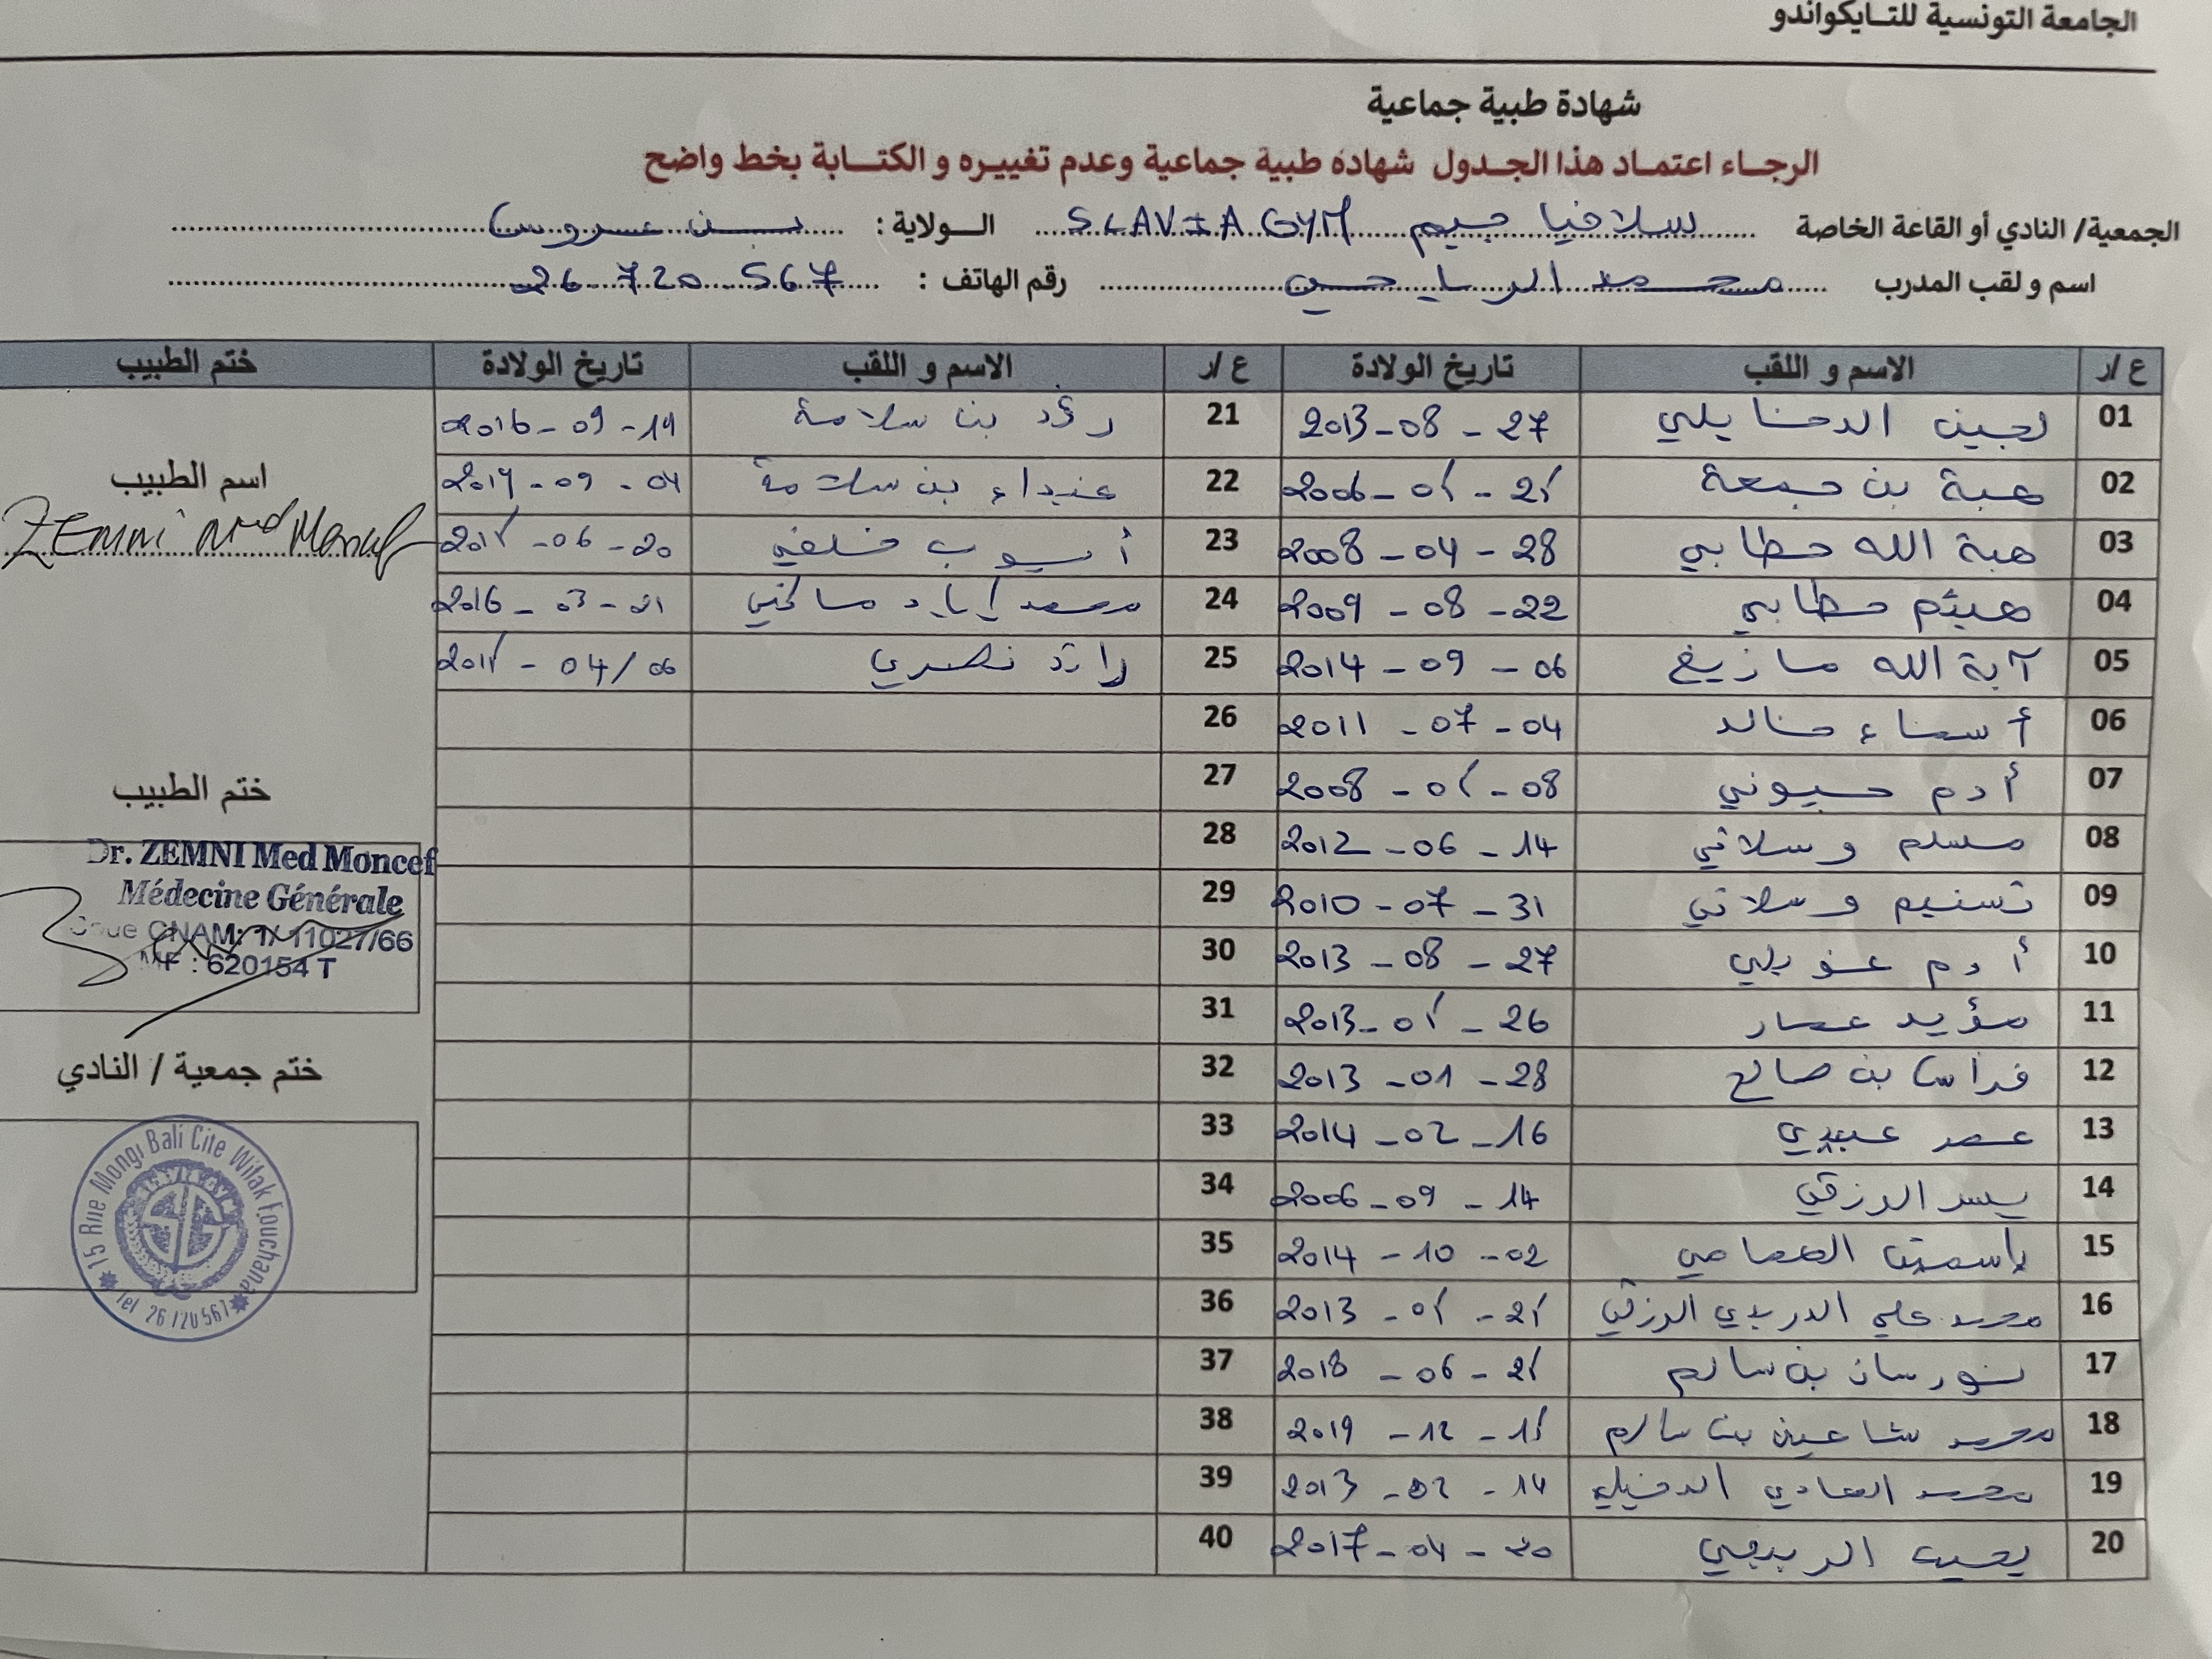 الجامعة التونسية للتـايكواندو
شهادة طبية جماعية
الرجـاء اعتمـاد هذا الجـدول شهاده طبية جماعية وعدم تغييـره و الكتـابة بخط واضح
الجمعية/ النادي أو القاعة الخاصة سلافيا جيم SLAVIA GYM الـولاية : بن عروس
اسم و لقب المدرب محمد الرياحي رقم الهاتف : 26 720 567
ع /ر الاسم و اللقب تاريخ الولادة ع /ر الاسم و اللقب تاريخ الولادة ختم الطبيب
01 لجين الدخايلي 2013-08-27 21 رؤد بن سلامة 2016-09-14
02 هبة بن جمعة 22 بن سلامة
03 هبة الله حطابي 2008-04-28 23 أيوب خلفي
04 هيثم حطابي 2009-08-22 24 محمد إياد مالخي 2016-03-01
05 آية الله مازيغ 2014-09-06 25 رائد نصري
06 أسماء خالد 2011-07-04 26
07 أدم 27
08 مسلم وسلاتي 2012-06-14 28
09 تسنيم وسلاتي 2010-07-31 29
10 أدم 2013-08-27 30
11 مؤيد عمار 31
12 فراس بن صالح 2013-01-28 32
13 عمر عبيدي 2014-02-16 33
14 يسر الرزقي 2006-09-14 34
15 ياسمين 2014-10-02 35
16 محمد علي الدريدي الرزقي 36
17 نورسان بن سالم 37
18 محمد شاهين بن سالم 38
19 محمد الهادي 2013-02-14 39
20 2017-04-20 40
اسم الطبيب
ZEMNI Med Moncef
ختم الطبيب
Dr. ZEMNI Med Moncef
Médecine Générale
CNAM: 1/ 11027/66
MF : 620154 T
ختم جمعية / النادي
15 Rue Mongi Bali Cite Wifak Fouchana
Tel 26720567